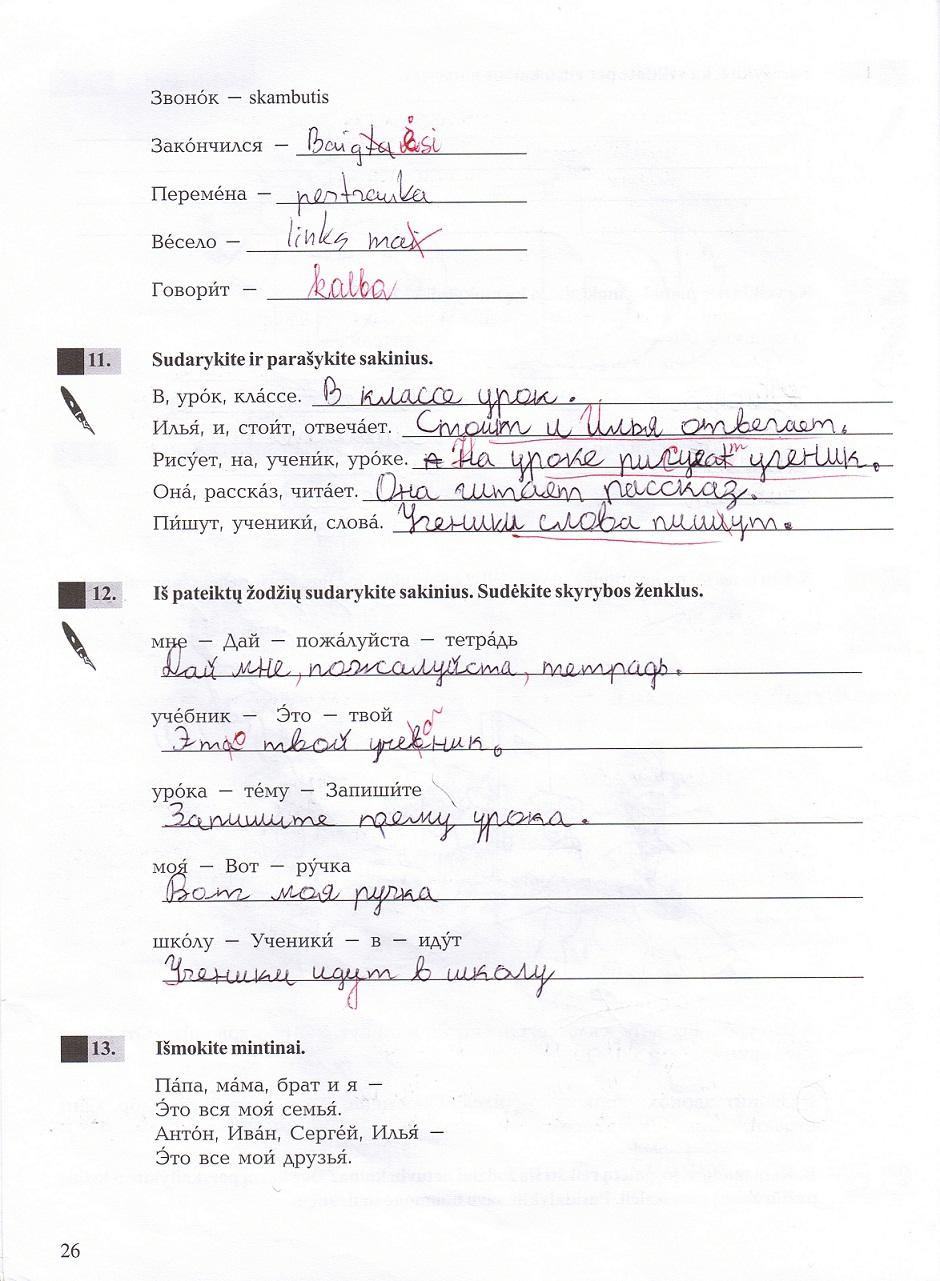 Звоно́к – skambutis
Зако́нчился – Baigėsi
Переме́на – pertrauka
Ве́село – links ma
Говори́т – kalba
11. Sudarykite ir parašykite sakinius.
В, уро́к, кла́ссе. В классе урок.
Илья́, и, стои́т, отвеча́ет. Стоит и Илья отвечает.
Рису́ет, на, учени́к, уро́ке. На уроке рисует ученик.
Она́, расска́з, чита́ет. Она читает рассказ.
Пи́шут, ученики́, слова́. Ученики слова пишут.
12. Iš pateiktų žodžių sudarykite sakinius. Sudėkite skyrybos ženklus.
мне – Дай – пожа́луйста – тетра́дь
Дай мне, пожалуйста, тетрадь.
уче́бник – Э́то – твой
Это твой учебник.
уро́ка – те́му – Запиши́те
Запишите тему урока.
моя́ – Вот – ру́чка
Вот моя ручка
шко́лу – Ученики́ – в – иду́т
Ученики идут в школу
13. Išmokite mintinai.
Па́па, ма́ма, брат и я –
Э́то вся моя́ семья́.
Анто́н, Ива́н, Серге́й, Илья́ –
Э́то все мои́ друзья́.
26